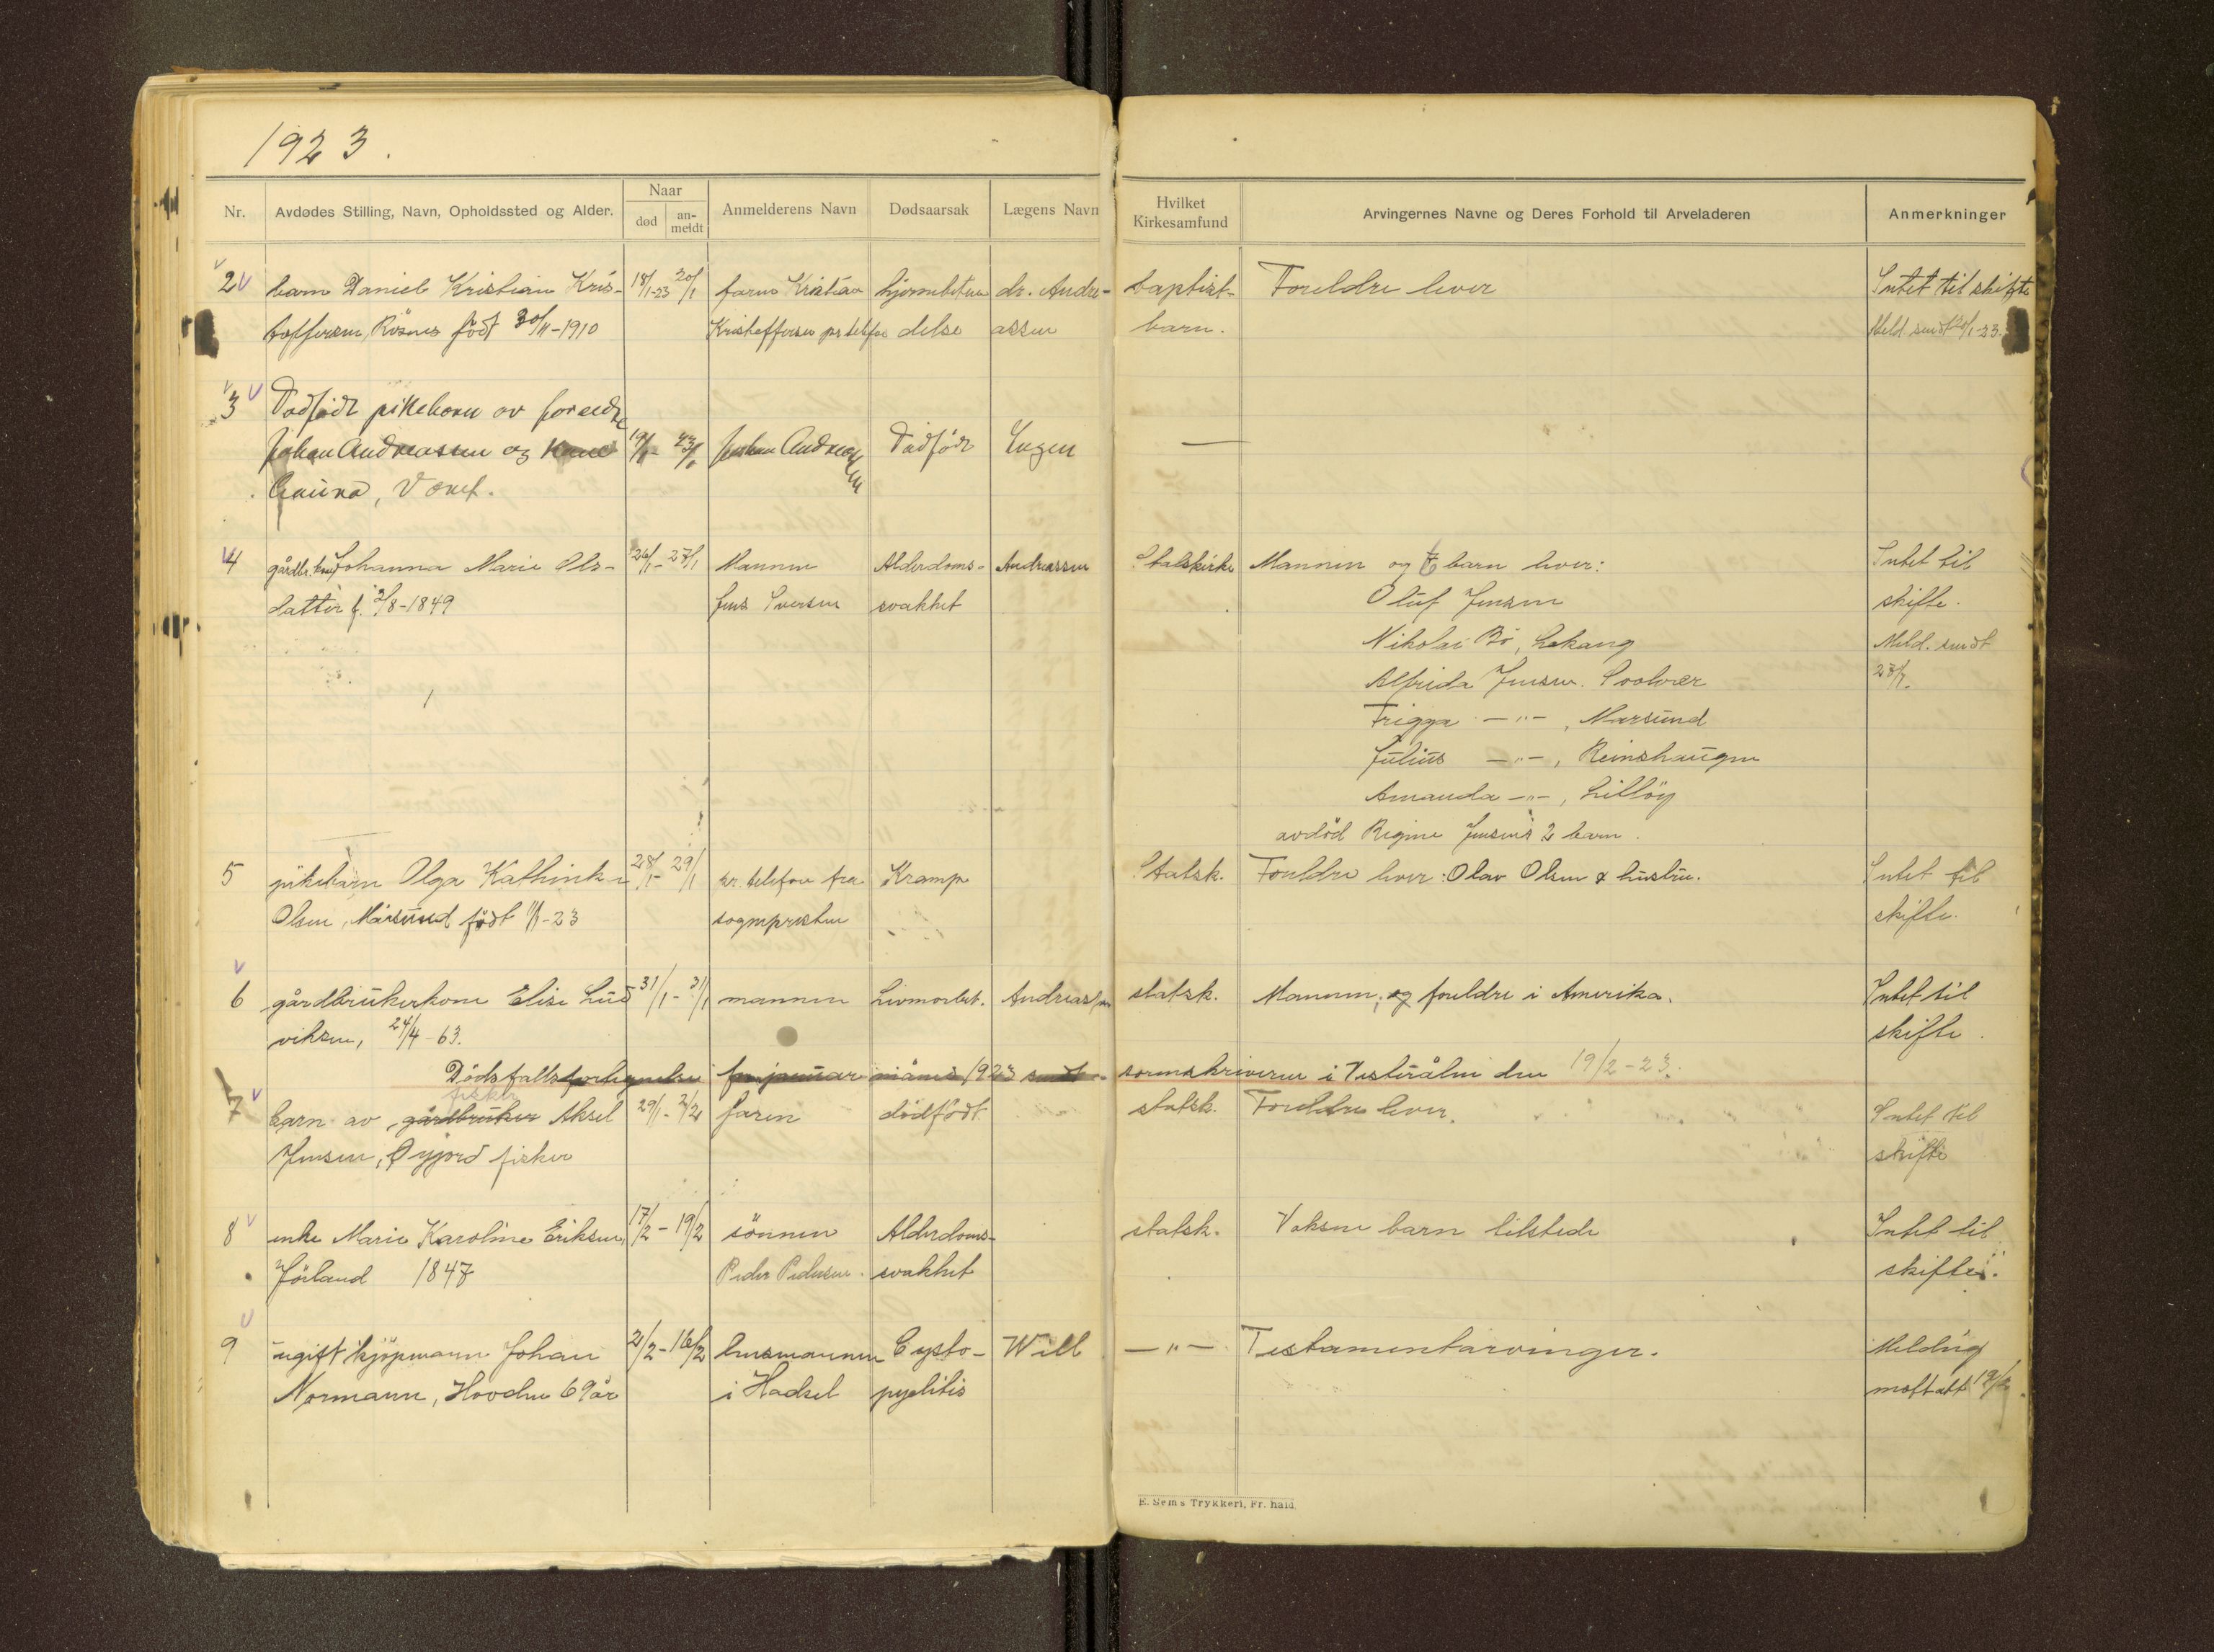 1923.
Nr. Avdødes Stilling, Navn, Opholdssted og Alder. Naar død an-meldt Anmelderens Navn Dødsaarsak Lægens Navn Hvilket Kirkesamfund Arvingernes Navne og Deres Forhold til Arveladeren Anmerkninger
2 barn Daniel Kristian Kris- 18/1-23 20/1 faren Kristian hjernebetæn dr. Andre- baptist- Foreldre lever Intet til skifte
toffersen, Rösnes född 30/11-1910 Kristoffersen pr telefon delse assen barn. Meld. sendt 20/1-23.
3 Dødfødt pikebarn av foreldre
Johan Andreassen og 19/1- 23/1 Johan Andreassen Dødfødt Ingen —
4 gårdbr.kone Johanna Marie Ols- 26/1-27/1 Mannen Alderdoms- Andreassen Statskirke Mannen og barn lever: Intet til
datter f. 2/8-1849 Jens Iversen svakhet Oluf Jensen skifte.
Nikolai Bö, Lekang Meld. sendt
Alfrida Jensen. Svolvær
Frigga —"—, Marsund
Julius —"—, Reinshaugen
Amanda —"—, Lilløy
avdöd Regine Jensens 2 barn.
5 pikebarn Olga Kathinka 28/1- 29/1 pr. telefon fra Krampe Statsk. Foreldre lever: Olav Olsen & hustru. Intet til
Olsen, Mårsund født 11/1-23 sognepresten skifte.
6 gårdbrukerkone Elise Lud 31/1- 31/1 mannen Livmorbet. Andreassen statsk. Mannen, og foreldre i Amerika. Intet til
viksen, 24/4-63. skifte.
Dödsfallsfortegnelse for januar måned 1923 sendt sorenskriveren i Vesterålen den 19/2-23.
fisker
7 barn av gårdbruker Aksel 29/1-2/2 faren dödfödt statsk. Foreldre lever. Intet til
Jensen, Öyjord fisker skifte
8 enke Marie Karoline Eriksen, 17/2-19/2 sönnen Alderdoms- statsk. Voksne barn tilstede Intet til
Jörland 1847 Peder Pedersen. svakhet skifte.
9 ugift kjöpmann Johan 2/2-16/2 lensmannen Cysto- Will —"— Testamentarvinger. Melding
Normann, Hovden 69 år i Hadsel pyelitis mottatt 19/2.
E. Sem's Trykkeri, Fr. hald.